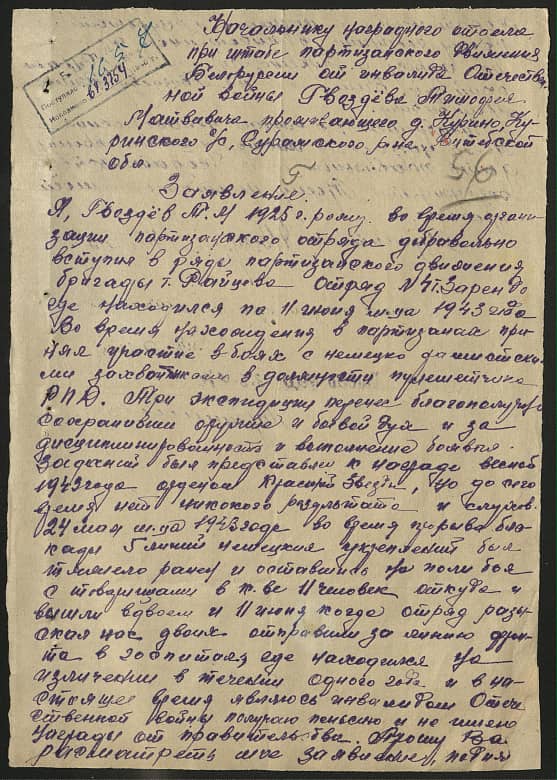 Начальнику наградного отдела
при штабе партизанского движения
Белоруссии от инвалида Отечествен
ной войны Гвоздёва Тимофея
Матвеевича проживающего д. Курино, Ку-
ринского с/с, Суражского р-на, Витебской
обл.
Поступило
Заявление.
Я, Гвоздёв Т. М 1925 г. рожд. во время органи
зации партизанского отряда добравольно
вступил в ряды партизанского движения
бригады т. Райцева отряд №4 т.
где находился по 11 июня м-ца 1943 года
Во время нахождения в партизанах при
нял участие в боях с немецко фашистски
ми захватчиками в должности пулеметчика
РПД. Три экспедиции перенес благополучно
сохранивши оружие и боевой дух и за
дисциплинированность и выполнение боевых
заданий был представлен к награде весной
1943 года орденом Красной Звезды, но до сего
время нет никокого результата и слухов.
24 мая м-ца 1943 годе во время прорыва бло
кады 5 линий немецких укреплений был
тяжело ранен и оставшись на поли боя
с товарищами в к-ве 11 человек откуда и
вышли вдвоем и 11 июня когда отряд разы
скал нас двоих отправили за линию фрон
та в госпиталь где находился на
излечении в течении одного года и в на
стоящее время являюсь инвалидом Отече
ственной войны получаю пенсию и не имею
награды от правительства. Прошу Ва
рассмотреть мое заявление,